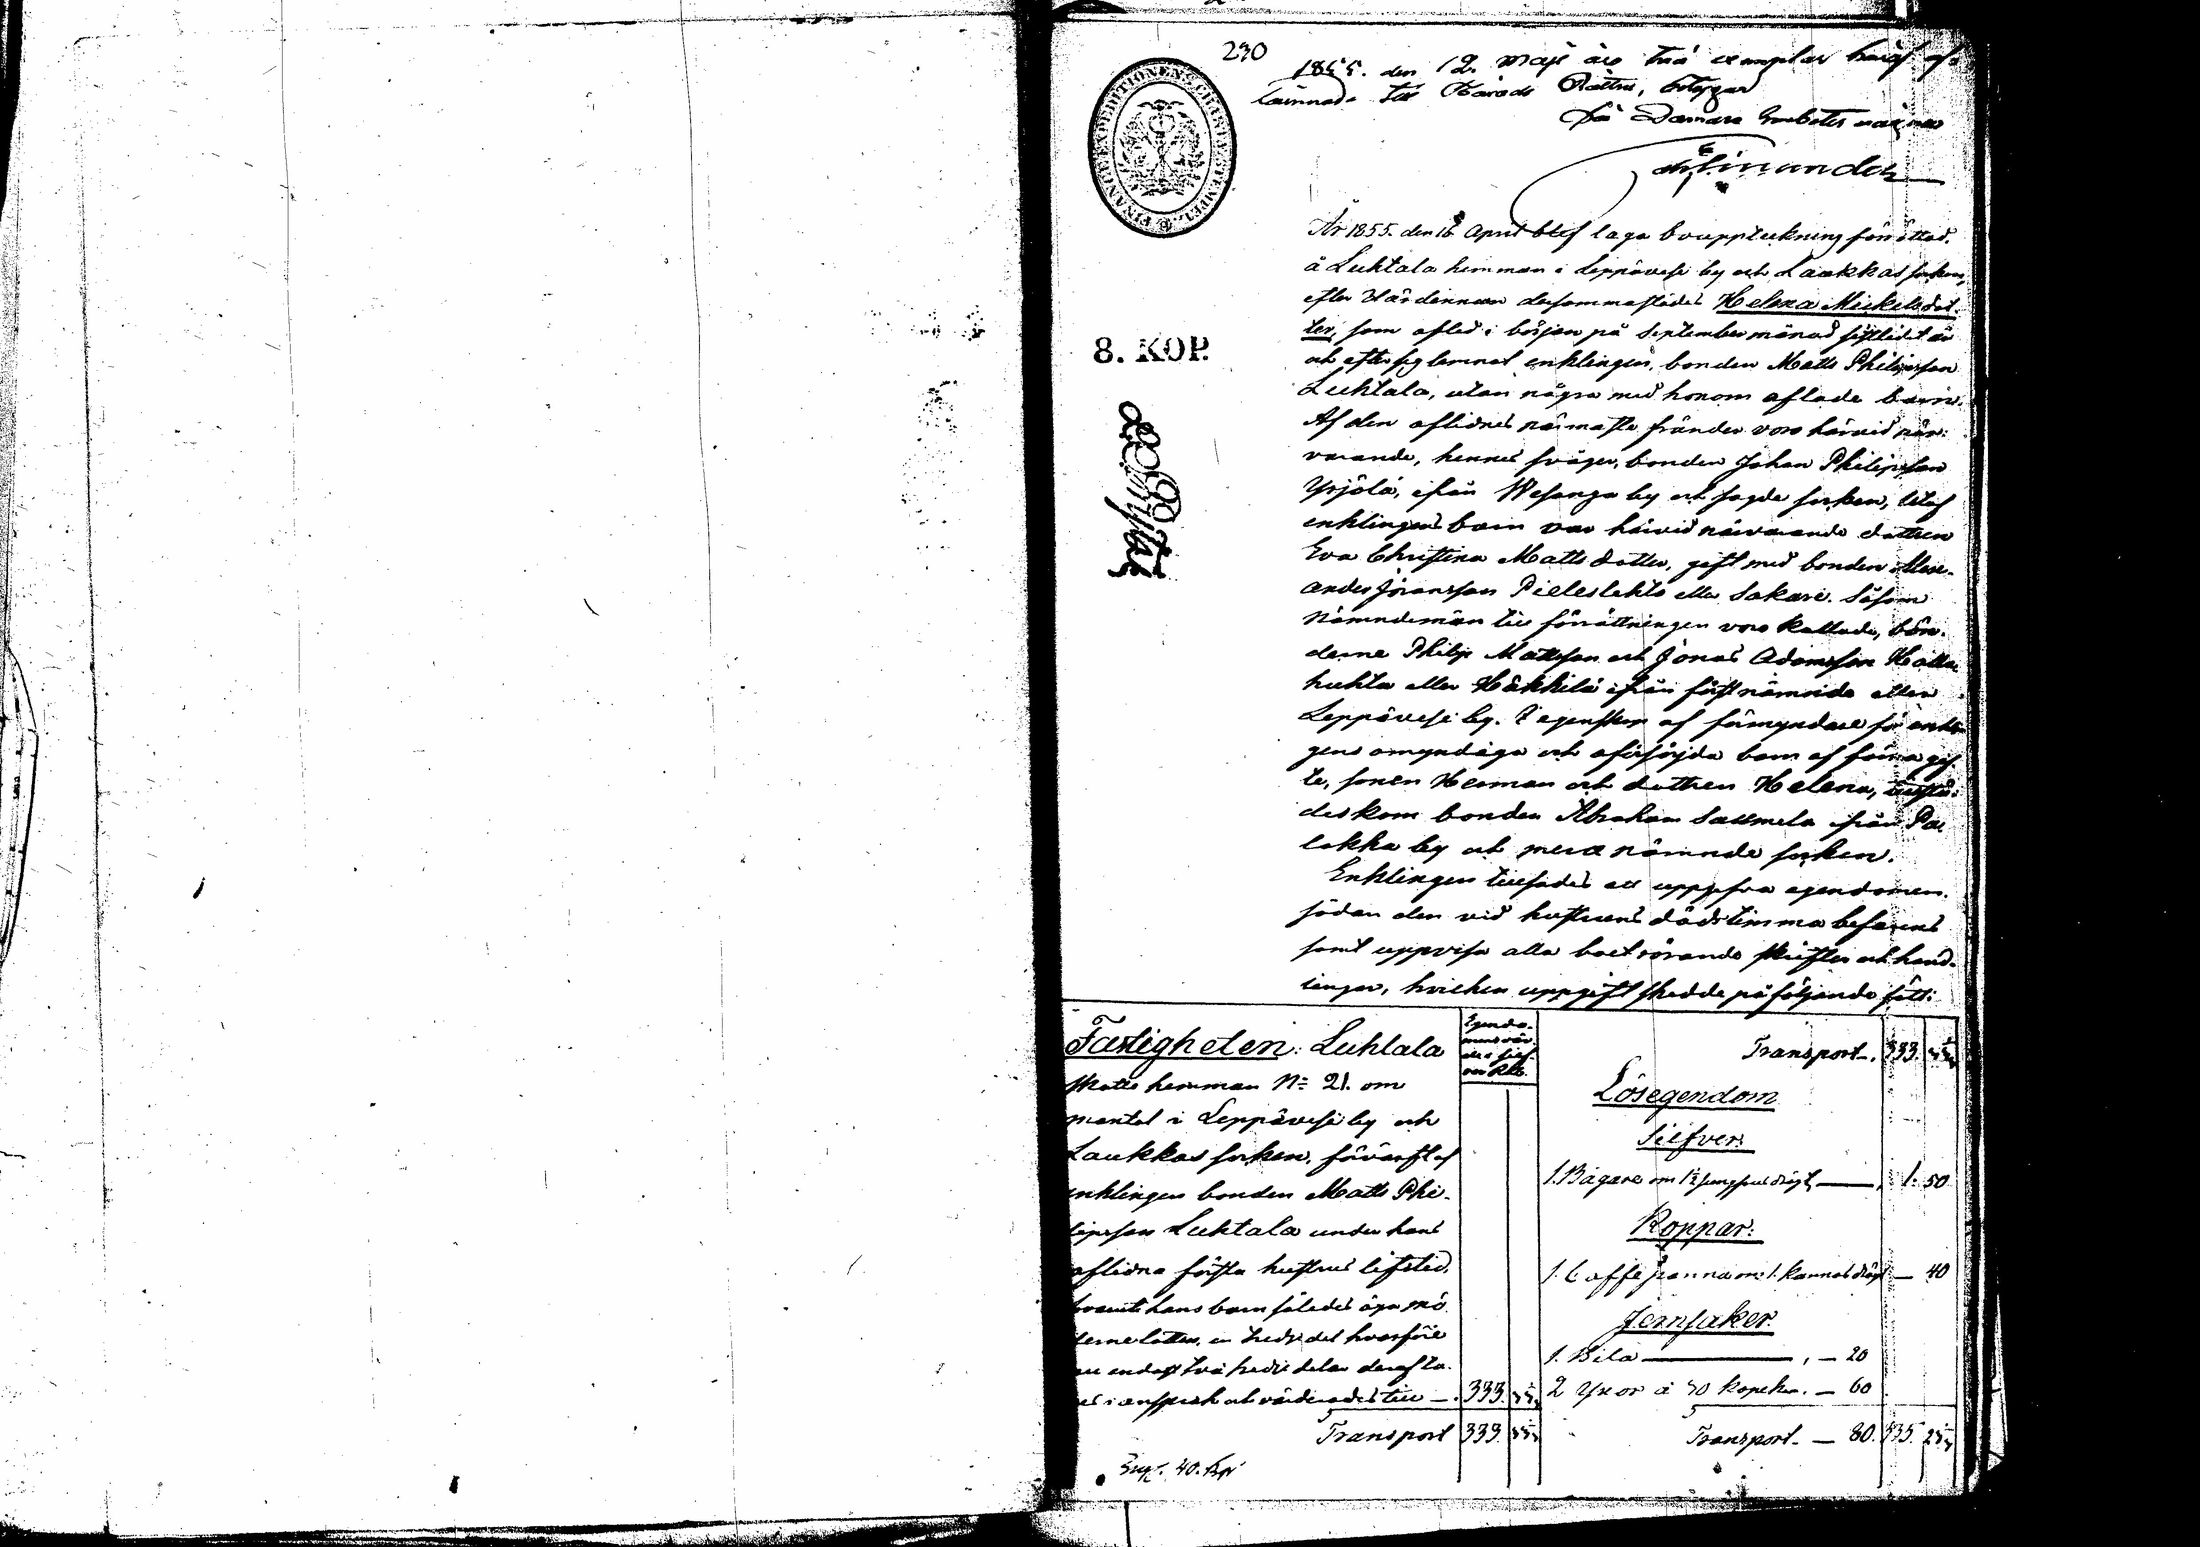 230
1855. den 12. Maji äro två exemplar häraf af-
lämnade till Härads Rätten, betygar
På Domare Embetets vägnar
FINANCE EXPEDITIONENS CHARTÆ STEMPEL
8. KOP.
År 1855. den 16 April blef laga bouppteckning förrättad
å Luhtala hemman i Leppävesi by och Laukkas socken,
efter Värdinnan dersammastädes Helena Mickelsdot-
ter, som afled i början på September månad sistledet år
och efter sig lemnat enklingen, bonden Matts Philipsson
Luhtala, utan några med honom aflade barn.
Af den aflidnes närmaste fränder voro härvid när-
varande, hennes svåger, bonden Johan Philipsson
Yrjölä, ifrån Wesanga by och sagde socken,
enklingens barn var härvid närvarande dottren
Eva Christina Mattsdotter, gift med bonden Alex-
ander Göransson Pieleslehto eller Sakari. Såsom
Nämndemän till förrättningen voro kallade, bön-
derne Philip Mattsson och Jonas Adamsson
huhta eller Häkkilä ifrån förstnämnde eller
Leppävesi by. I egenskap af förmyndare för enklin-
gens omyndiga och oförsörjda barn af förra gif-
te, sonen Herman och dottren Helena, tillstä-
des kom bonden Abraham Saumela ifrån Pa-
lokka by och mera nämnde socken.
Enklingen tillsades att uppgifva egendomen
sådan den vid hustruns dödstimma befanns
samt uppvisa alla boet rörande skrifter och hand-
lingar, hvilken uppgift skedde på följande sätt:
Fastigheten: Luhtala
skatte hemman No 21. om
mantal i Leppävesi by och
Laukkas socken, förvärft af
enklingen bonden Matts Phi-
lipsson Luhtala under hans
aflidna första hustrus lifstid,
hvarest hans barn således äga mö-
derne lotten, en tredjedel hvarföre
nu endast två tredje delar deraf ta-
ges i anspråk och värderades till — 333.
Transport 333
Exp. 40. kop.
Egendo-
mens vär-
de i silf-
ver Rbl.
Transport. 333.
Lösegendom
Silfver.
1. Bägare om 1½ jungfrus drägt — 1. 50
Koppar:
1. Caffepanna om 1. kannas drägt — 40
Jernsaker.
1. Bila — 20
2 Yxor à 30 kopek. — 60
Transport. — 80. 335.